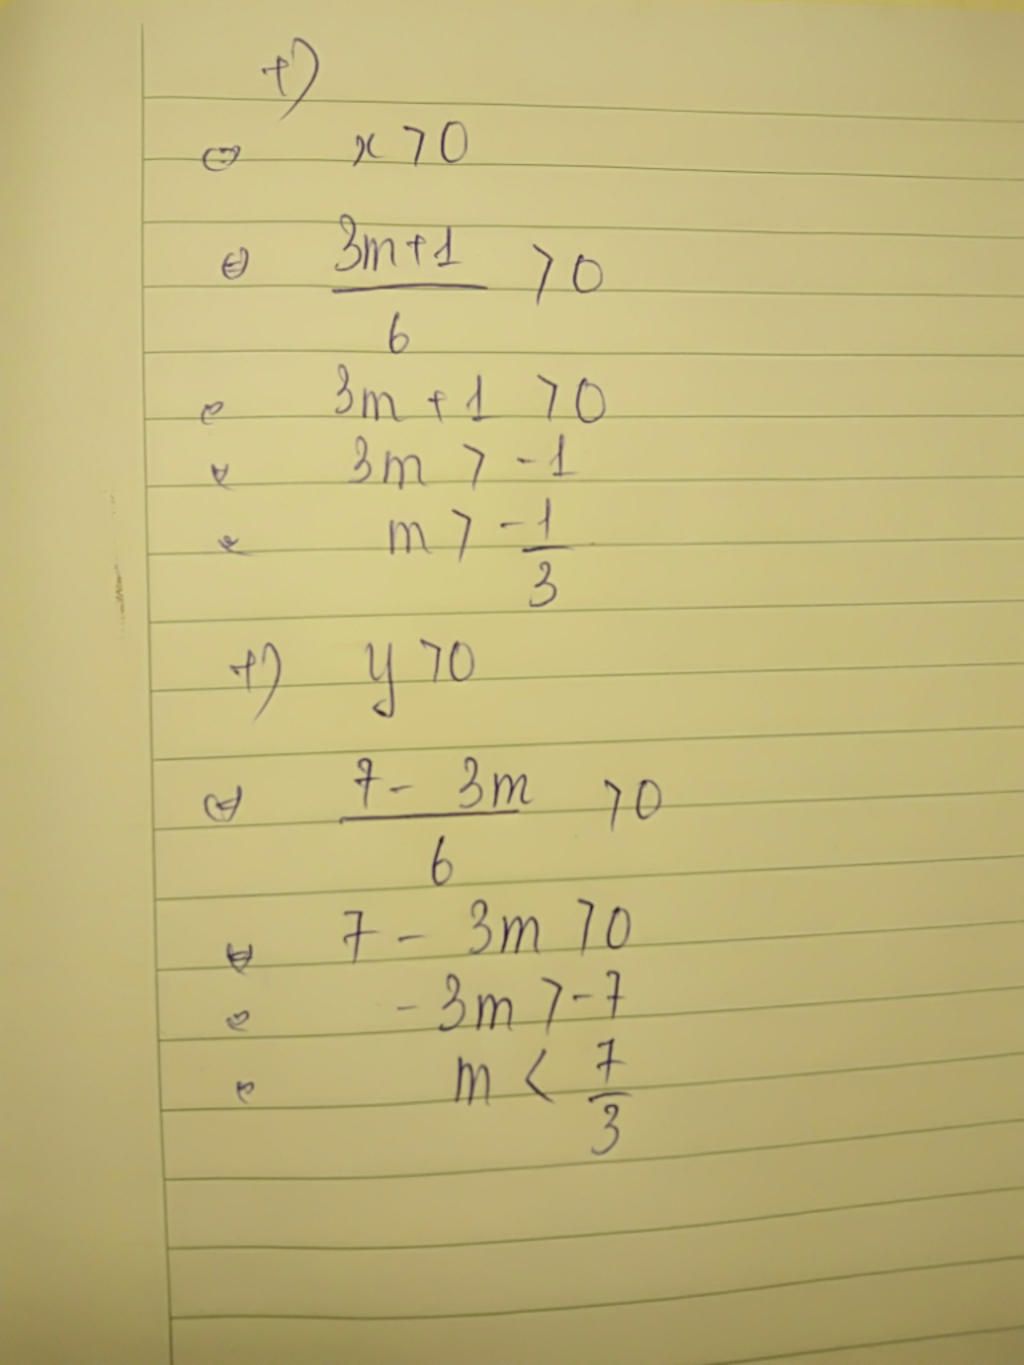 +)
⇔ x > 0
⇔ \frac{3m+1}{6} > 0
⇔ 3m + 1 > 0
⇔ 3m > -1
⇔ m > \frac{-1}{3}
+) y > 0
⇔ \frac{7 - 3m}{6} > 0
⇔ 7 - 3m > 0
⇔ -3m > -7
⇔ m < \frac{7}{3}